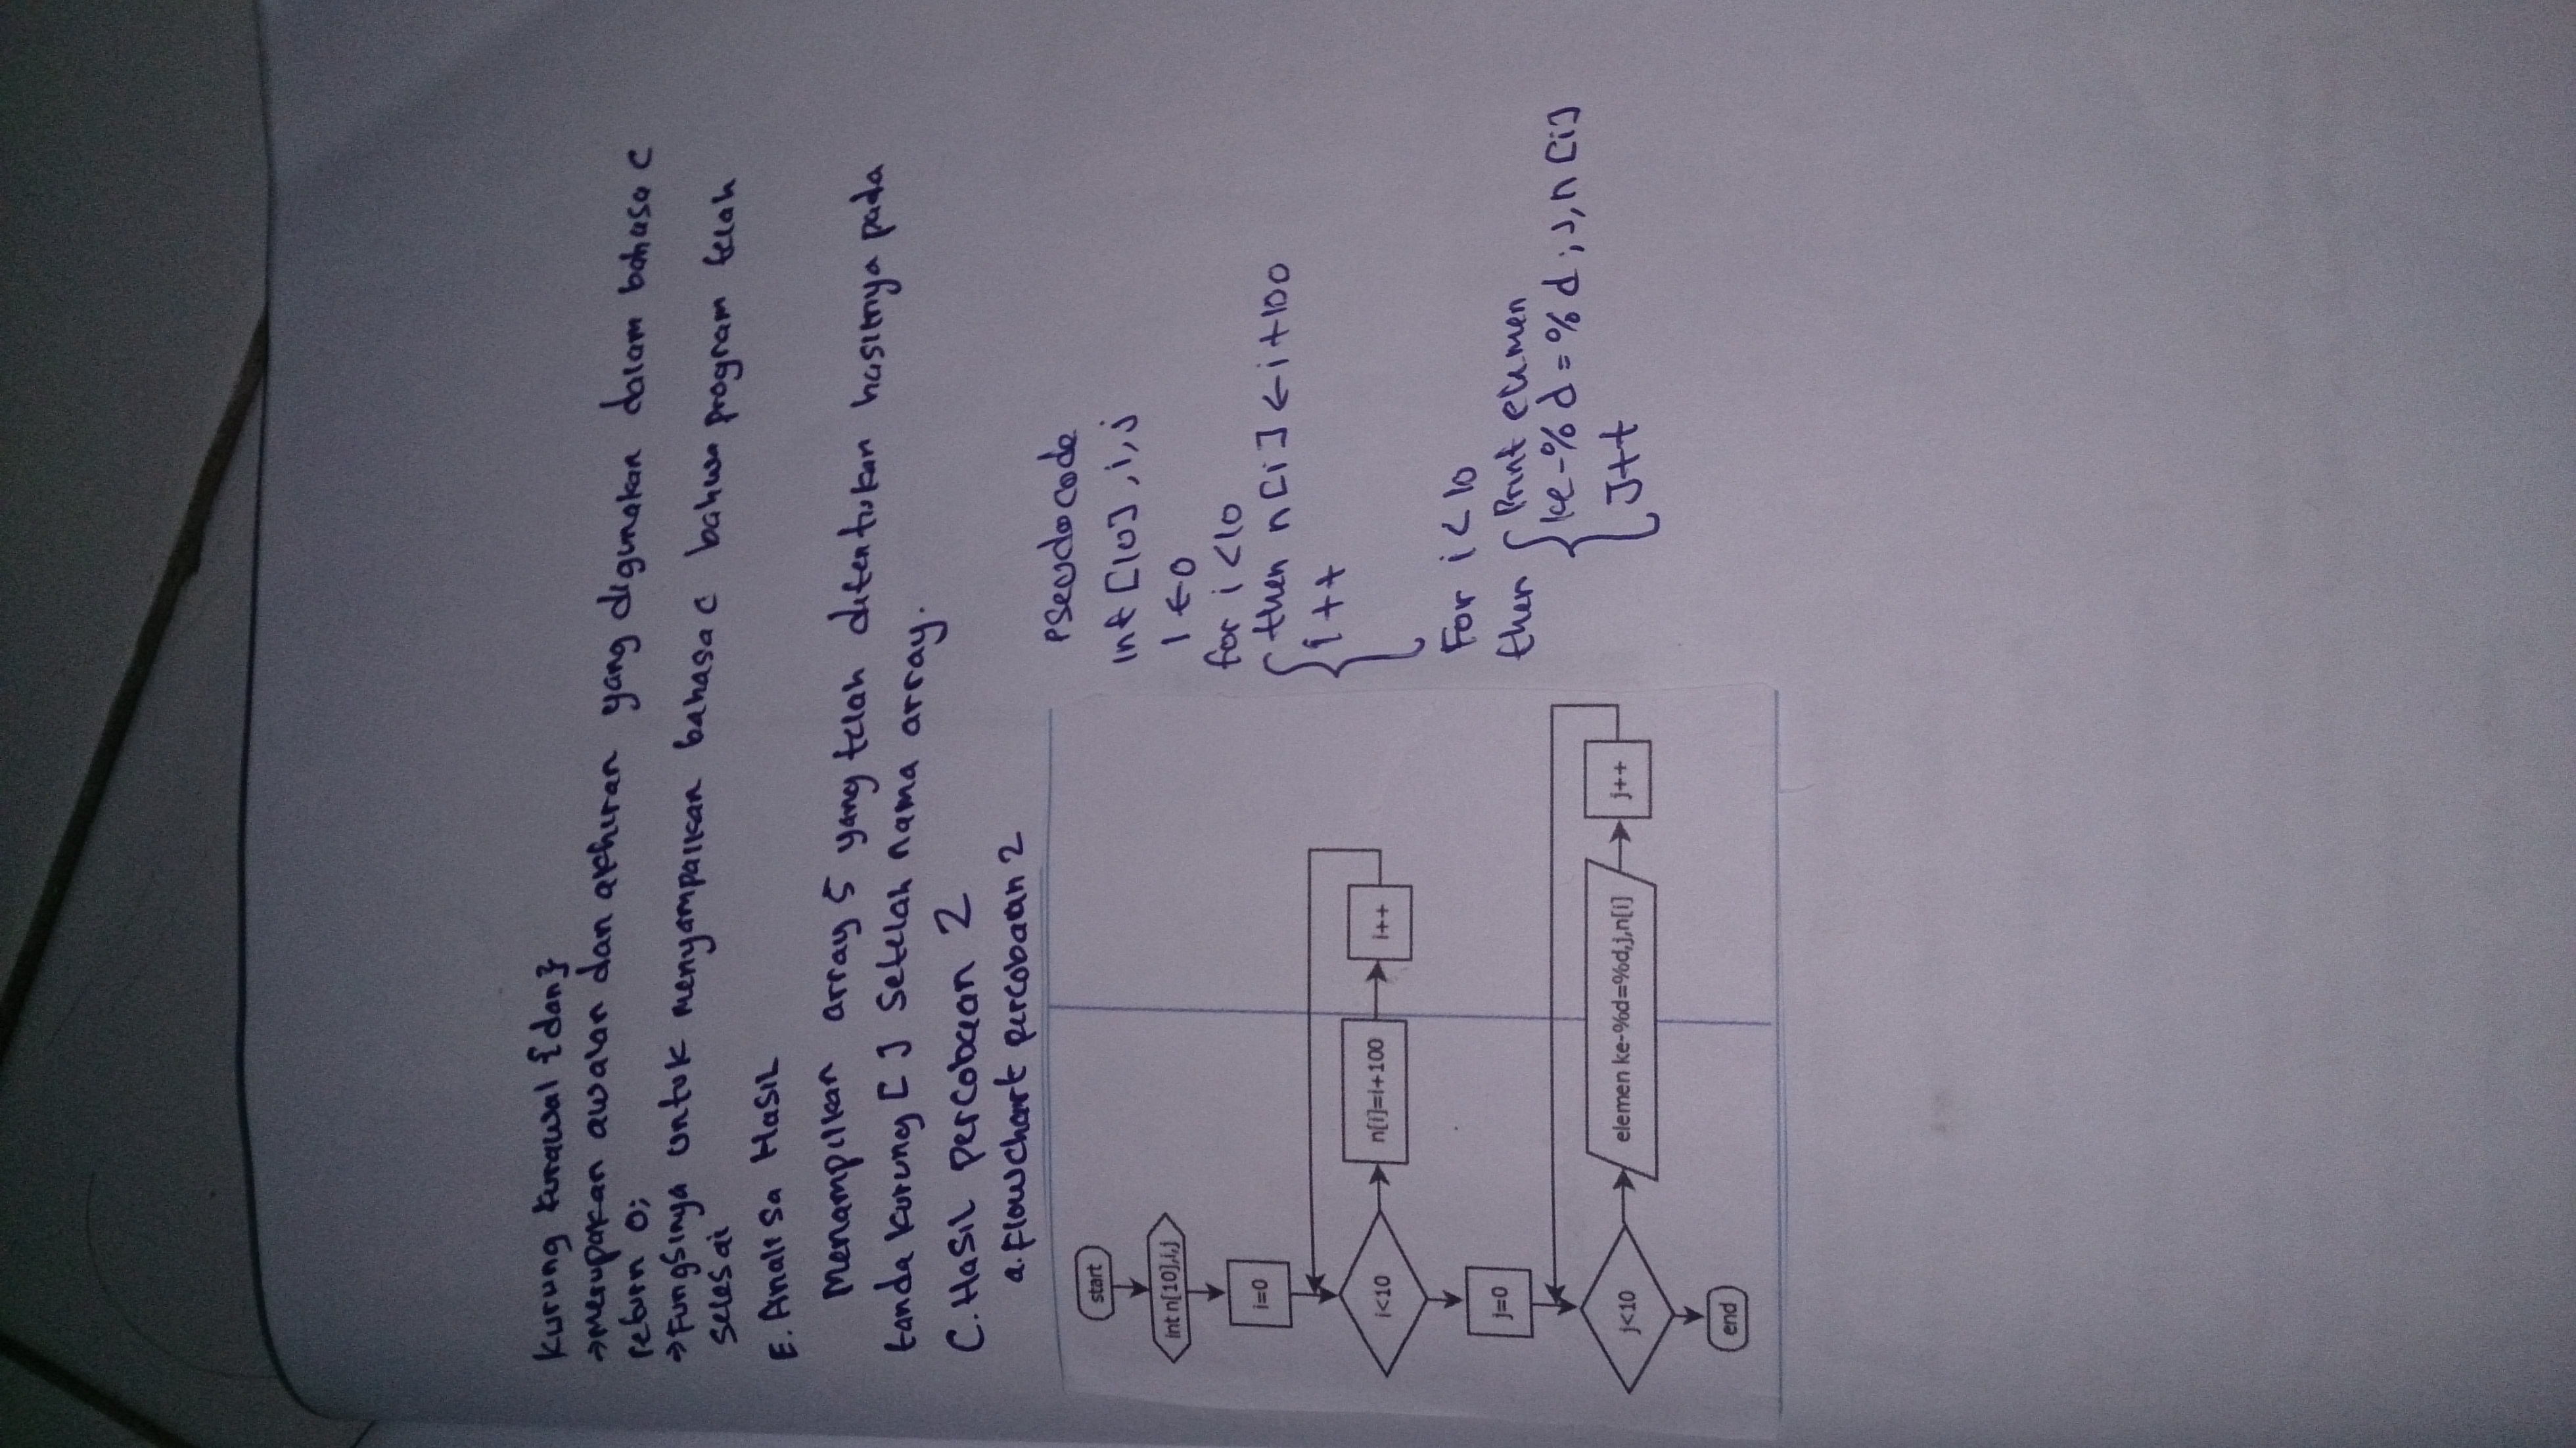 Kurung kurawal {dan}
→ Merupakan awalan dan akhiran yang digunakan dalam bahasa C
return 0;
→ Fungsinya untuk menyampaikan bahasa c bahwa program telah
selesai
E. Analisa Hasil
Menampilkan array 5 yang telah ditentukan hasilnya pada
tanda kurung [ ] setelah nama array.
C. Hasil percobaan 2
a. Flowchart percobaan 2
start
int n[10],i,j
i=0
i<10
n[i]=i+100
i++
j=0
j<10
elemen ke-%d=%d,j,n[i]
j++
end
Pseudocode
Int [10], i, j
i ← 0
for i < 10
{ then n[i] ← i + 100
i++
}
For i < 10
then { Print elemen
ke-%d = %d, j, n[i]
J++
}